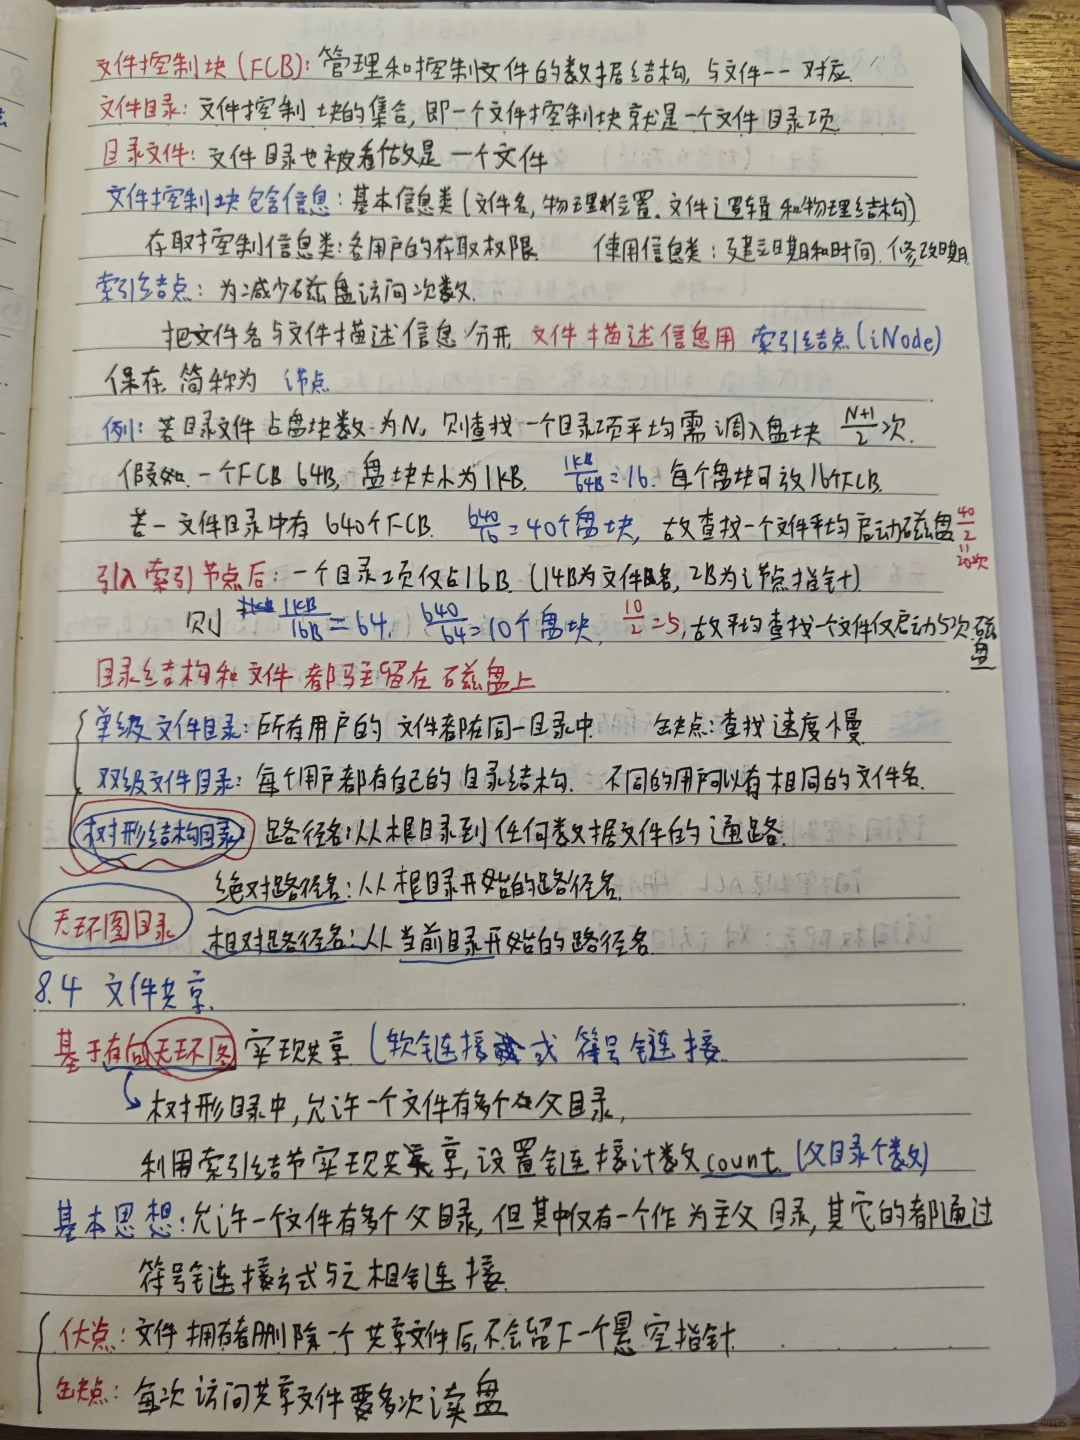 文件控制块(FCB): 管理和控制文件的数据结构, 与文件一一对应.
文件目录: 文件控制块的集合, 即一个文件控制块就是一个文件目录项
目录文件: 文件目录也被看做是一个文件
文件控制块包含信息: 基本信息类(文件名, 物理位置. 文件逻辑和物理结构)
存取控制信息类: 各用户的存取权限 使用信息类: 建立日期和时间. 修改日期
索引结点: 为减少磁盘访问次数.
把文件名与文件描述信息分开 文件描述信息用 索引结点(iNode)
保存. 简称为 i节点
例: 若目录文件占盘块数为N, 则查找一个目录项平均需调入盘块 (N+1)/2 次.
假如 一个FCB 64B, 盘块大小为1KB. 1KB/64B=16. 每个盘块可放16个FCB.
若一文件目录中有 640个FCB. 640/16=40个盘块, 故查找一个文件平均启动磁盘 40/2=20次
引入索引节点后: 一个目录项仅占16B. (14B为文件名, 2B为i节点指针)
则 1KB/16B=64. 640/64=10个盘块, 10/2=5, 故平均查找一个文件仅启动5次磁盘
目录结构和文件都驻留在磁盘上
单级文件目录: 所有用户的文件都在同一目录中. 缺点: 查找速度慢
双级文件目录: 每个用户都有自己的目录结构. 不同的用户可以有相同的文件名.
树形结构目录: 路径名: 从根目录到任何数据文件的通路.
绝对路径名: 从根目录开始的路径名.
无环图目录
相对路径名: 从当前目录开始的路径名
8.4 文件共享.
基于有向无环图 实现共享 (软链接 或 符号链接.
树形目录中, 允许一个文件有多个父目录,
利用索引结节实现共享, 设置链接计数count. (父目录个数)
基本思想: 允许一个文件有多个父目录, 但其中仅有一个作为主父目录, 其它的都通过
符号链接方式与之相链接.
优点: 文件拥有者删除一个共享文件后, 不会留下一个悬空指针
缺点: 每次访问共享文件要多次读盘